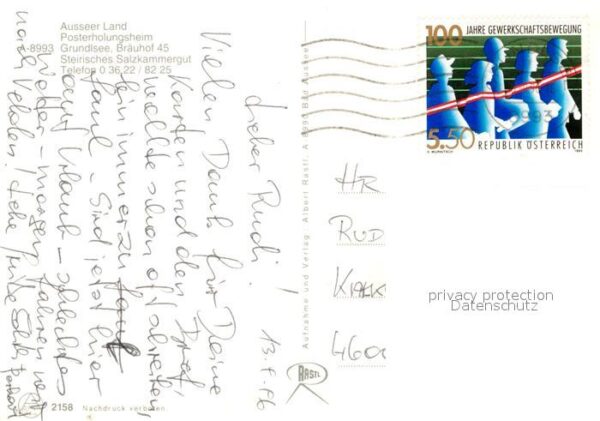 Ausseer Land
Posterholungsheim
A-8993 Grundlsee, Bräuhof 45
Steirisches Salzkammergut
Telefon 0 36 22 / 82 25
13.
Lieber Rudi!
Vielen Dank für Deine
Karten und den Brief,
wollte schon oft schreiben,
bin immer zu
faul - Sind jetzt hier
auf Urlaub - schlechtes
Wetter - morgen fahren wir
nach
2158 Nachdruck verboten
Aufnahme und Verlag: Albert Rastl, A 8990 Bad Aussee
RASTL
100 JAHRE GEWERKSCHAFTSBEWEGUNG
5.50
REPUBLIK ÖSTERREICH
1993
HR
RUD
460
privacy protection
Datenschutz